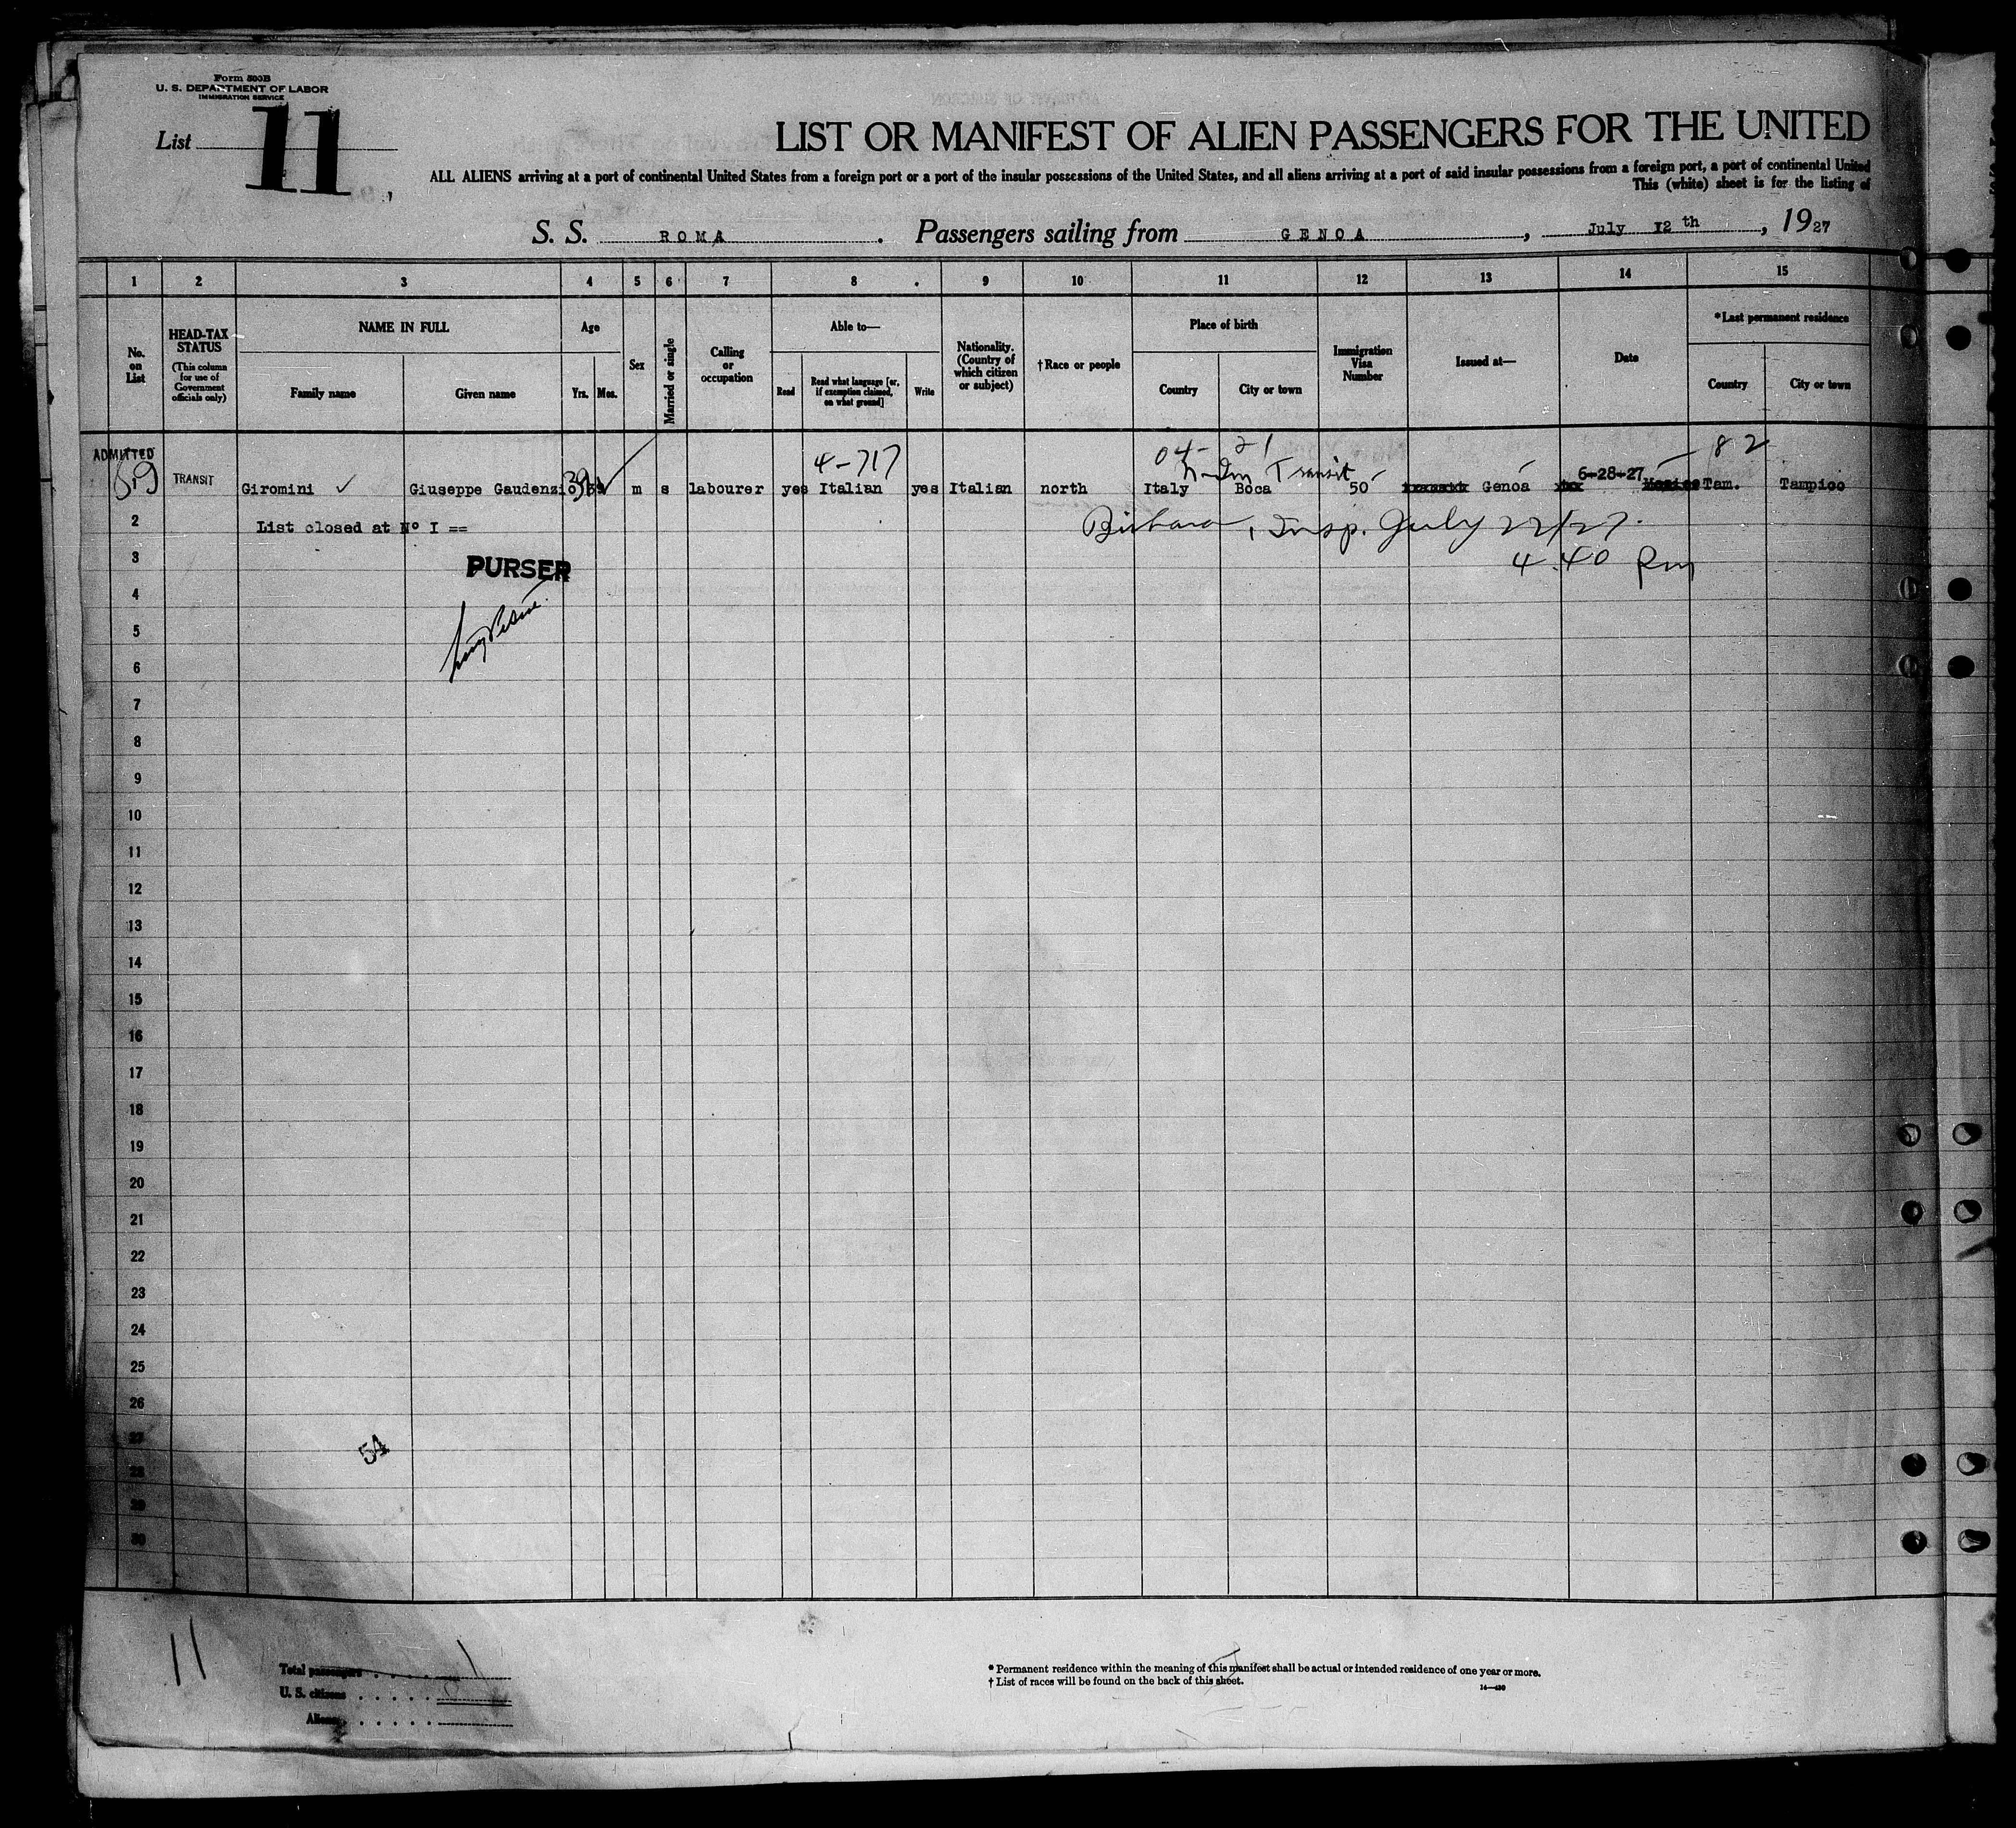 Form 500B
U. S. DEPARTMENT OF LABOR
IMMIGRATION SERVICE
List 11,
LIST OR MANIFEST OF ALIEN PASSENGERS FOR THE UNITED
ALL ALIENS arriving at a port of continental United States from a foreign port or a port of the insular possessions of the United States, and all aliens arriving at a port of said insular possessions from a foreign port, a port of continental United
This (white) sheet is for the listing of
S. S. ROMA. Passengers sailing from GENOA, July 12th, 1927
1 2 3 4 5 6 7 8 9 10 11 12 13 14 15
No. on List
HEAD-TAX STATUS (This column for use of Government officials only)
NAME IN FULL
Family name
Given name
Age
Yrs. Mos.
Sex
Married or single
Calling or occupation
Able to—
Read
Read what language [or, if exemption claimed, on what ground]
Write
Nationality. (Country of which citizen or subject)
†Race or people
Place of birth
Country
City or town
Immigration Visa Number
Issued at—
Date
*Last permanent residence
Country
City or town
4-717 04- 21 82
ADMITTED Transit
TRANSIT Giromini Giuseppe Gaudenzio 39 m s labourer yes Italian yes Italian north Italy Boca 50 Genoa 6-28-27 Tam. Tampico
2 List closed at Nº I == Insp. July 22/27.
3 PURSER 4.40 Pm
4
5
6
7
8
9
10
11
12
13
14
15
16
17
18
19
20
21
22
23
24
25
26
27
54
28
29
30
11
Total passengers . . . . . 1
U. S. citizens . . . . .
Aliens . . . . .
* Permanent residence within the meaning of this manifest shall be actual or intended residence of one year or more.
† List of races will be found on the back of this sheet.
14—430